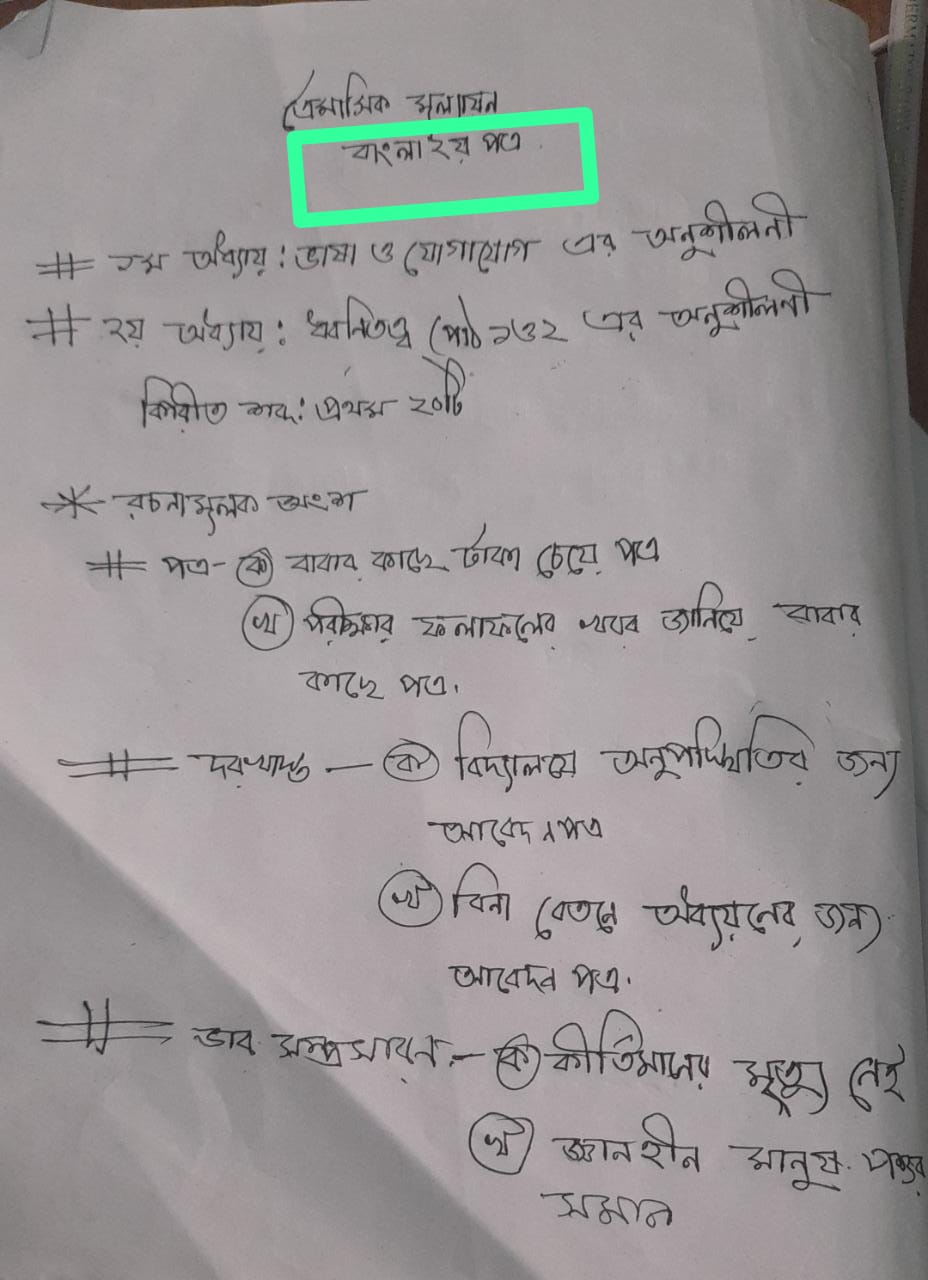 ত্রৈমাসিক মূল্যায়ন
বাংলা ২য় পত্র
# ১ম অধ্যায় : ভাষা ও যোগাযোগ এর অনুশীলনী
# ২য় অধ্যায় : ধ্বনিতত্ত্ব (পাঠ ১ও২ এর অনুশীলনী
বিপরীত শব্দ : প্রথম ২০টি
* রচনামূলক অংশ
# পত্র - (ক) বাবার কাছে টাকা চেয়ে পত্র
(খ) পরীক্ষার ফলাফলের খবর জানিয়ে বাবার
কাছে পত্র.
# দরখাস্ত — (ক) বিদ্যালয়ে অনুপস্থিতির জন্য
আবেদনপত্র
(খ) বিনা বেতনে অধ্যয়নের জন্য
আবেদন পত্র.
# ভাব সম্প্রসারণ - (ক) কীর্তিমানের মৃত্যু নেই
(খ) জ্ঞানহীন মানুষ পশুর
সমান